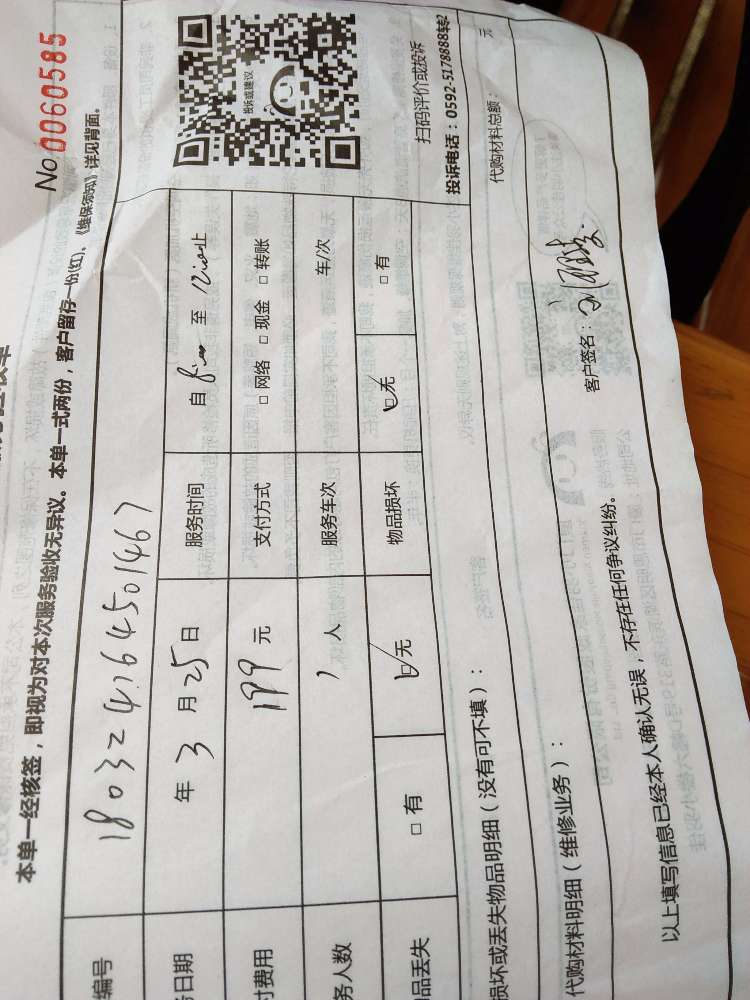 No 0060585
本单一经核签，即视为对本次服务验收无异议。本单一式两份，客户留存一份(红)、《维保须知》详见背面。
编号 180324164501467
日期 年 3 月 25 日 服务时间 自 至 止
付费用 199 元 支付方式 □ 网络 □ 现金 □ 转账
务人数 1 人 服务车次 车/次
品丢失 □ 有 □ 无 物品损坏 □ 无 □ 有
投诉或建议
扫码评价或投诉
投诉电话：0592-5178888转2
损坏或丢失物品明细（没有可不填）：
代购材料明细（维修业务）： 代购材料总额： 元
以上填写信息已经本人确认无误，不存在任何争议纠纷。 客户签名：